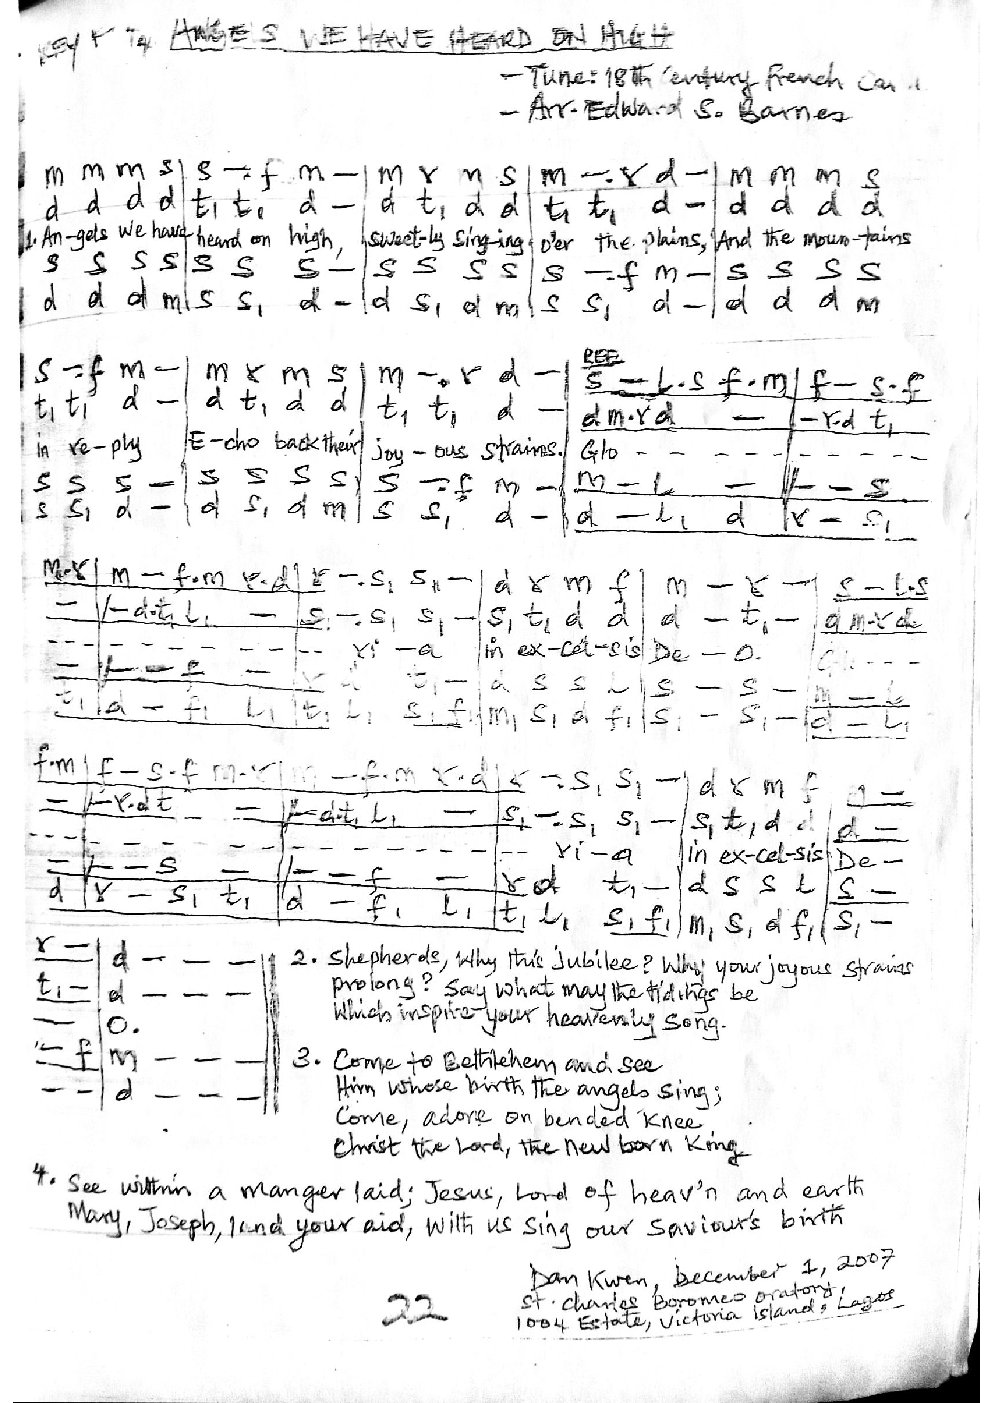 KEY F 4 ANGELS WE HAVE HEARD ON HIGH
- Tune: 18th Century French
- Arr. Edward S. Barnes
m m m s | s -:f m - | m r m s | m -:r d - | m m m s
d d d d | t₁ t₁ d - | d t₁ d d | t₁ t₁ d - | d d d d
1. An-gels we have heard on high, sweet-ly sing-ing o'er the plains, And the moun-tains
s s s s | s s s - | s s s s | s -:f m - | s s s s
d d d m | s s₁ d - | d s₁ d m | s s₁ d - | d d d m
s -:f m - | m r m s | m -.r d - | REF s - l.s f.m | f - s.f
t₁ t₁ d - | d t₁ d d | t₁ t₁ d - | d m.r d - | - r.d t₁
in re-ply E-cho back their joy-ous strains. Glo - - - - - - - -
s s s - | s s s s | s -:f m - | m - l - | l - s
s s₁ d - | d s₁ d m | s s₁ d - | d - l₁ d | r - s₁
m.r | m - f.m r.d | r -.s₁ s₁ - | d r m f | m - r - | s - l.s
- | - d.t₁ l₁ - | s₁ -.s₁ s₁ - | s₁ t₁ d d | d - t₁ - | d m.r d
- - - - - - - - - - ri-a in ex-cel-sis De-o. Gl - - -
- | - - f - | r d t₁ - | d s s l | s - s - | m - l
t₁ | d - f₁ l₁ | t₁ l₁ s₁ f₁ | m₁ s₁ d f₁ | s₁ - s₁ - | d - l₁
f.m | f - s.f m.r | m - f.m r.d | r -.s₁ s₁ - | d r m f | m -
- | - r.d t - | - d.t₁ l₁ - | s₁ -.s₁ s₁ - | s₁ t₁ d d | d -
- - - - - - - - - - - - ri-a in ex-cel-sis De-
- | - - s - | - - f - | r d t₁ - | d s s l | s -
d | r - s₁ t₁ | d - f₁ l₁ | t₁ l₁ s₁ f₁ | m₁ s₁ d f₁ | s₁ -
r - | d - - -
t₁ - | d - - -
- | o.
- f | m - - -
- - | d - - -
2. Shepherds, Why this Jubilee? Why your joyous strains
prolong? Say what may the tidings be
Which inspire your heavenly song.
3. Come to Bethlehem and see
Him whose birth the angels sing;
Come, adore on bended knee
Christ the Lord, the new born King
4. See within a manger laid; Jesus, Lord of heav'n and earth
Mary, Joseph, lend your aid, With us sing our saviour's birth
Dan Kwen, December 1, 2007
St. Charles Boromeo Oratory,
1004 Estate, Victoria Island, Lagos
22